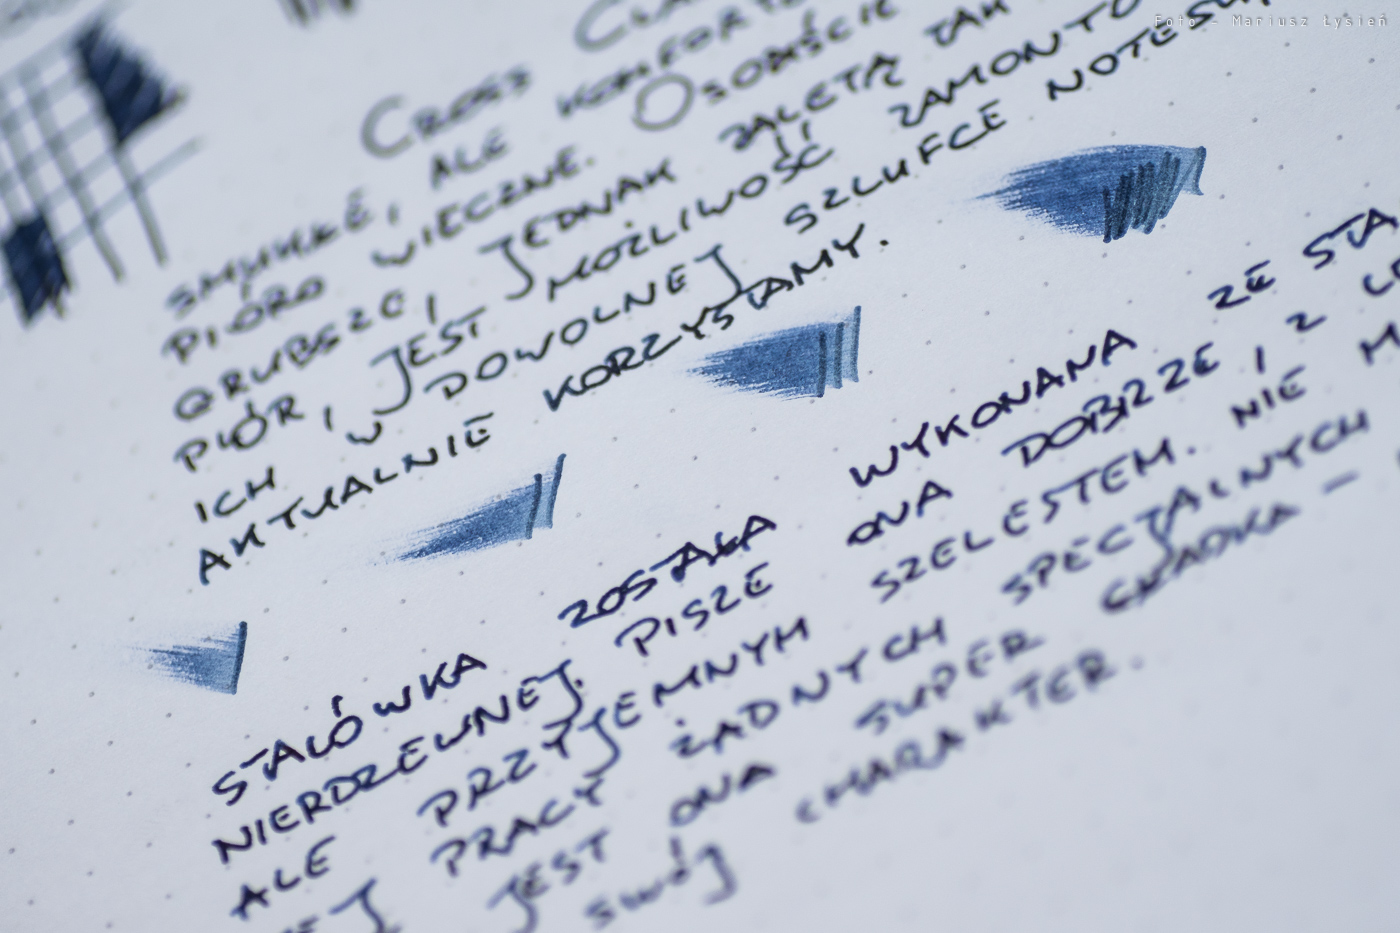 Foto - Mariusz Łysień
CROSS
SMUKŁE, ALE KOMFORT
PIÓRO WIECZNE. OSOBIŚCIE
GRUBSZE, JEDNAK ZALETĄ TAK
PIÓR, JEST MOŻLIWOŚĆ ZAMONTO
ICH W DOWOLNEJ SZLUFCE NOTESU
AKTUALNIE KORZYSTAMY.
STALÓWKA ZOSTAŁA WYKONANA ZE STA
NIERDZEWNEJ. PISZE ONA DOBRZE I Z
ALE PRZYJEMNYM SZELESTEM. NIE
PRACY ŻADNYCH SPECJALNYCH
JEST ONA SUPER GŁADKA –
SWÓJ CHARAKTER.